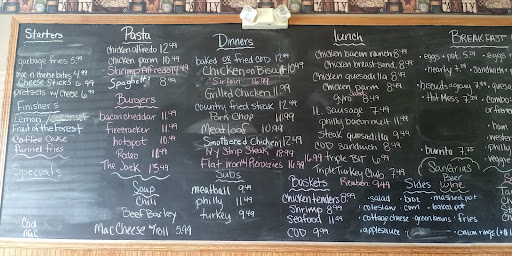 Starters
garbage fries 5.99
mac n cheese bites 4.99
Cheese sticks 6.99
pretzels w/ chese 6.99
Finishers
Lemon / Coconut
Fruit of the forest
Coffee Cake
Funnel fries
Specials
Cod
Mac
Pasta
chicken alfredo 12.99
chicken parm 10.99
Shrimp Alfredo 14.99
Spaghetti 8.99
Burgers
bacon cheddar 11.49
firecracker 11.49
hotspot 10.99
Rodeo 11.49
The Jack 13.49
Soup
Chili
Beef Barley
Mac Cheese Roll 5.99
Dinners
baked or fried COD 12.99
Chicken on Biscuit 10.99
Sirloin 16.99
Grilled Chicken 11.99
Country fried steak 12.99
Pork Chop 11.99
Meatloaf 10.99
Smothered Chicken 12.99
NY Strip Steak 18.99
Flat iron 4 Perogies 16.99
Subs
meatball 9.49
philly 11.49
turkey 9.49
lunch
chicken bacon ranch 8.49
chicken breast sand. 8.49
chicken quesadilla 9.49
chicken parm 8.49
Gyro 8.49
It. sausage 7.49
philly bacon melt 11.49
steak quesadilla 9.49
COD sandwich 8.49
triple BLT 6.99
Triple Turkey Club 7.49
Reuben 9.49
Baskets
chicken tenders 8.99
Shrimp 8.99
Seafood 11.99
COD 9.99
BREAKFAST
• eggs + pot. 5.29
• eggs
• nearly 7.99
• Sandwich
biscuits + gravy 7.99
• Hot Mess 7.99
• Combos
• burrito 7.25
philly
Veggie
Sangrias
Beer
Wine
Sides
• salad • broc • mashed pot
• coleslaw • corn • baked pot
• cottage cheese • green beans • fries
• applesauce
• onion rings